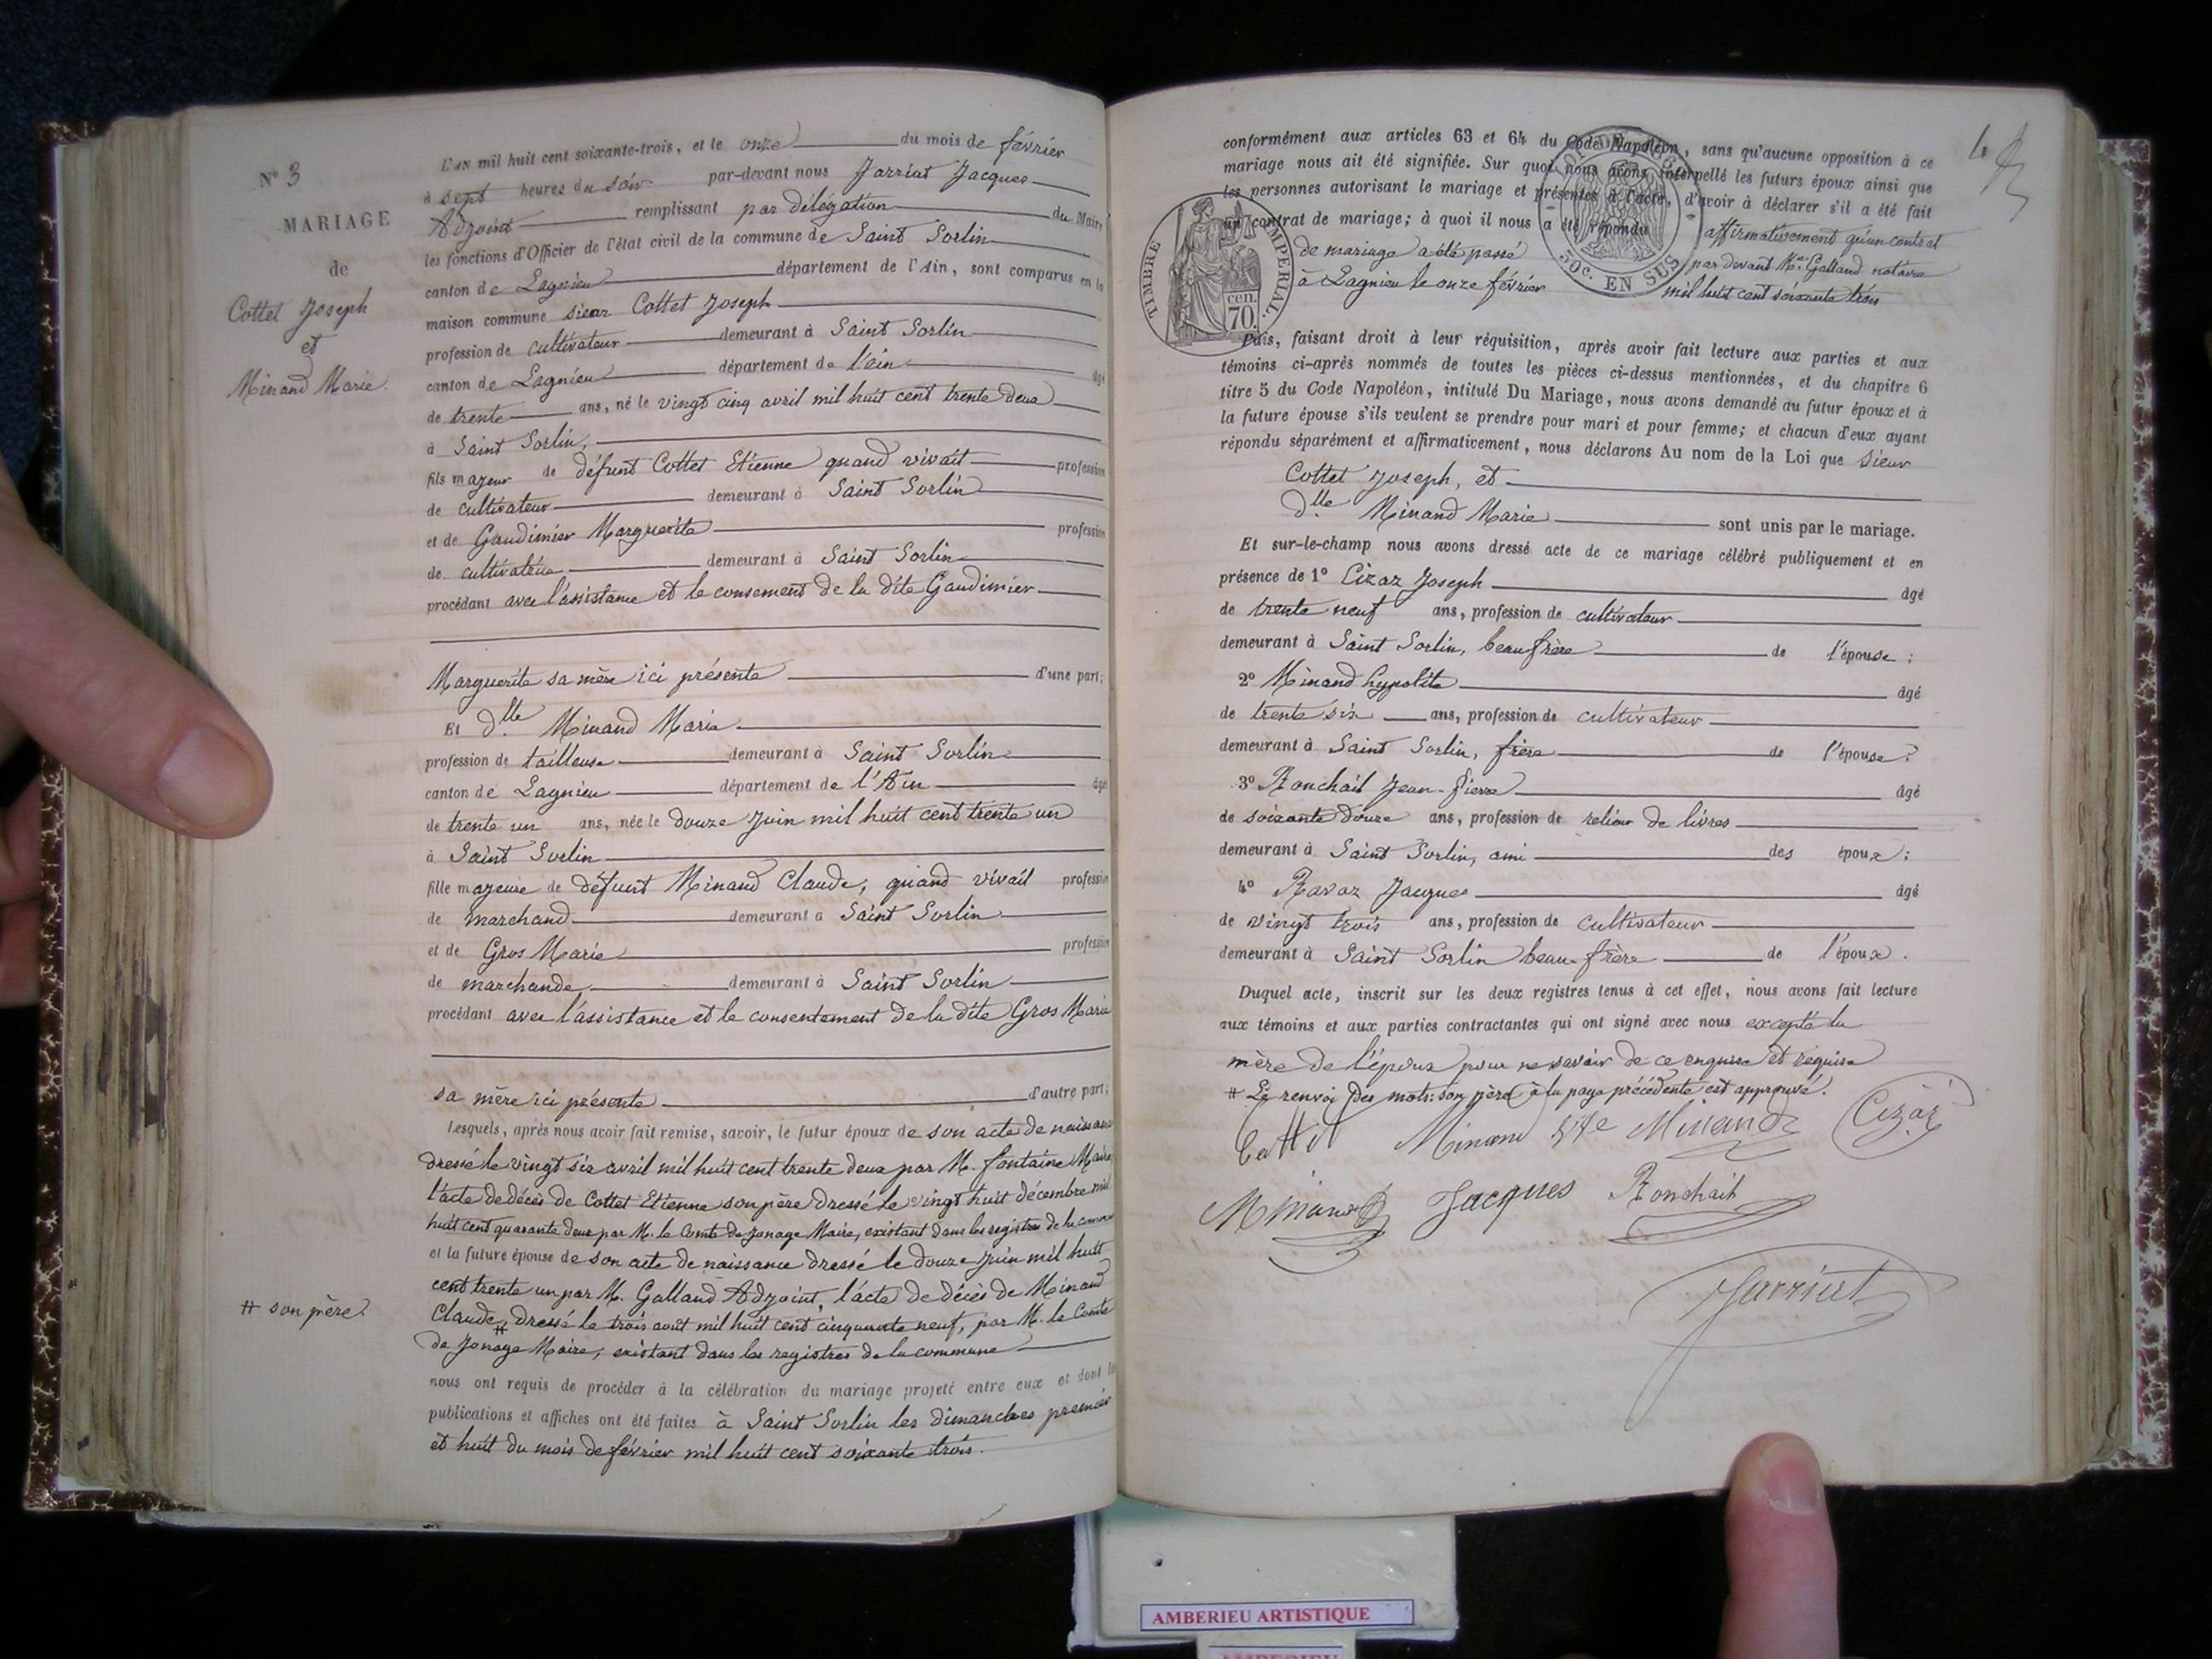 N° 3
MARIAGE
de
Cottet Joseph
et
Minand Marie.
L'AN mil huit cent soixante-trois, et le onze du mois de février
à sept heures du soir par-devant nous Jarriat Jacques
Adjoint remplissant par délégation du Maire
les fonctions d'Officier de l'état civil de la commune de Saint Sorlin
canton de Lagnieu département de l'Ain, sont comparus en la
maison commune sieur Cottet Joseph
profession de cultivateur demeurant à Saint Sorlin
canton de Lagnieu département de l'ain âgé
de trente ans, né le vingt cinq avril mil huit cent trente deux
à Saint Sorlin,
fils majeur de défunt Cottet Etienne quand vivait profession
de cultivateur demeurant à Saint Sorlin
et de Gaudimier Marguerite profession
de cultivatrice demeurant à Saint Sorlin
procédant avec l'assistance et le consement de la dite Gaudimier
Marguerite sa mère ici présente d'une part;
Et dlle Minand Marie
profession de tailleuse demeurant à Saint Sorlin
canton de Lagnieu département de l'Ain âgée
de trente un ans, née le douze Juin mil huit cent trente un
à Saint Sorlin
fille majeure de défunt Minand Claude, quand vivait profession
de marchand demeurant à Saint Sorlin
et de Gros Marie profession
de marchande demeurant à Saint Sorlin
procédant avec l'assistance et le consentement de la dite Gros Marie
sa mère ici présente d'autre part;
Lesquels, après nous avoir fait remise, savoir, le futur époux de son acte de naissance
dressé le vingt six avril mil huit cent trente deux par M. fontaine Maire
l'acte de décès de Cottet Etienne son père dressé le vingt huit décembre mil
huit cent quarante deux par M. le Comte de Jonage Maire, existant dans les registres de la commune
et la future épouse de son acte de naissance dressé le douze Juin mil huit
cent trente un par M. Galland Adjoint, l'acte de décès de Minand
Claude, # dressé le trois août mil huit cent cinquante neuf, par M. le Comte
de Jonage Maire, existant dans les registres de la commune
# son père
nous ont requis de procéder à la célébration du mariage projeté entre eux et dont les
publications et affiches ont été faites à Saint Sorlin les dimanches premier
et huit du mois de février mil huit cent soixante trois.
conformément aux articles 63 et 64 du Code Napoléon, sans qu'aucune opposition à ce
mariage nous ait été signifiée. Sur quoi nous avons interpellé les futurs époux ainsi que
les personnes autorisant le mariage et présentes à l'acte, d'avoir à déclarer s'il a été fait
un contrat de mariage; à quoi il nous a été répondu affirmativement qu'un contrat
de mariage a été passé par devant Me Galland notaire
à Lagnieu le onze février mil huit cent soixante trois
TIMBRE IMPERIAL.
cen.
70.
50c. EN SUS
Puis, faisant droit à leur réquisition, après avoir fait lecture aux parties et aux
témoins ci-après nommés de toutes les pièces ci-dessus mentionnées, et du chapitre 6
titre 5 du Code Napoléon, intitulé Du Mariage, nous avons demandé au futur époux et à
la future épouse s'ils veulent se prendre pour mari et pour femme; et chacun d'eux ayant
répondu séparément et affirmativement, nous déclarons Au nom de la Loi que sieur
Cottet Joseph, et
dlle Minand Marie sont unis par le mariage.
Et sur-le-champ nous avons dressé acte de ce mariage célébré publiquement et en
présence de 1° Cizaz Joseph âgé
de trente neuf ans, profession de cultivateur
demeurant à Saint Sorlin, beau frère de l'épouse;
2° Minand hypolite âgé
de trente six ans, profession de cultivateur
demeurant à Saint Sorlin, frère de l'épouse;
3° Ronchail Jean-Pierre âgé
de soixante douze ans, profession de relieur de livres
demeurant à Saint Sorlin, ami des époux;
4° Ravaz Jacques âgé
de vingt trois ans, profession de cultivateur
demeurant à Saint Sorlin beau-frère de l'époux.
Duquel acte, inscrit sur les deux registres tenus à cet effet, nous avons fait lecture
aux témoins et aux parties contractantes qui ont signé avec nous excepté la
mère de l'époux pour ne savoir de ce enquise et requise
# Le renvoi des mots: son père à la page précédente est approuvé.
Cottet Minand Minand Cizaz
Minand Jacques Ronchail
Jarriat
AMBERIEU ARTISTIQUE